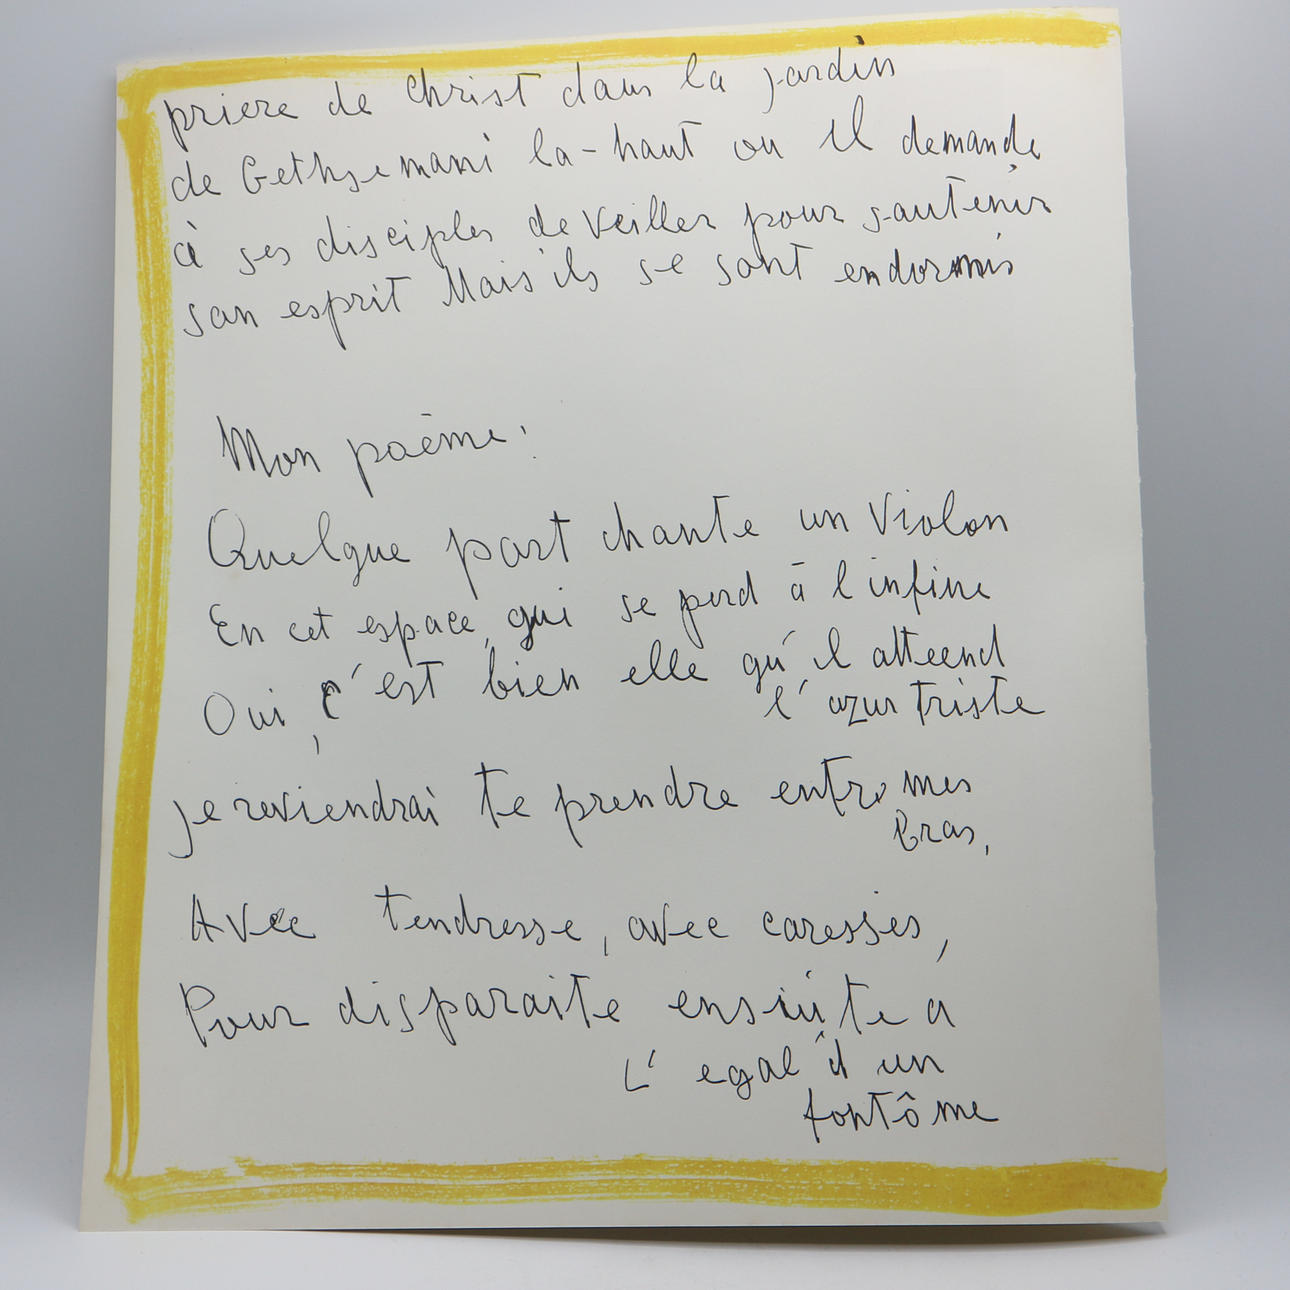 priere de Christ dans la jardin
de Gethsemani la-haut ou Il demande
à ses disciples de veiller pour soutenir
son esprit Mais ils se sont endormis
Mon poème:
Quelque part chante un Violon
En cet espace, qui se perd à l'infine
Oui, c'est bien elle qu'il atteend
l'azur triste
Je reviendrai te prendre entre mes
bras,
Avec tendresse, avec caresses,
Pour disparaite ensuite a
L'egal d'un
fontôme